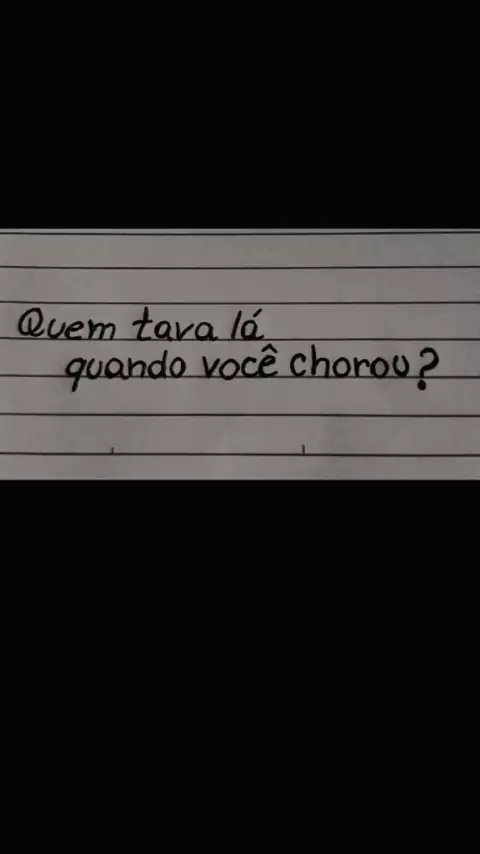 Quem tava lá
quando você chorou?